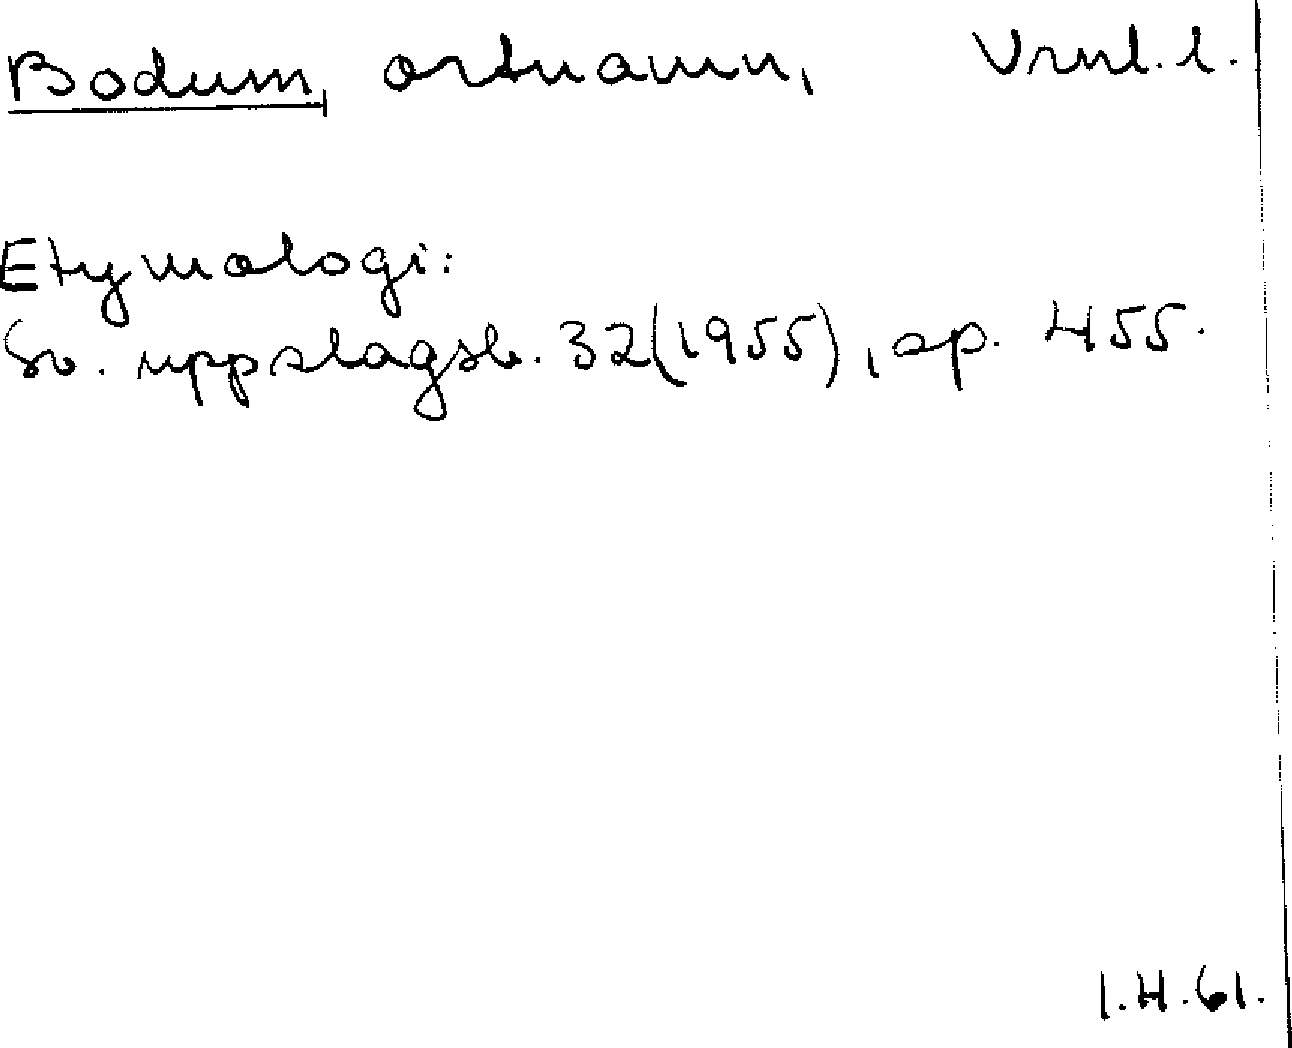 Bodum, ortnamn, Vrml. l.
Etymologi:
Sv. uppslagsb. 32(1955), sp. 455.
I.H.61.